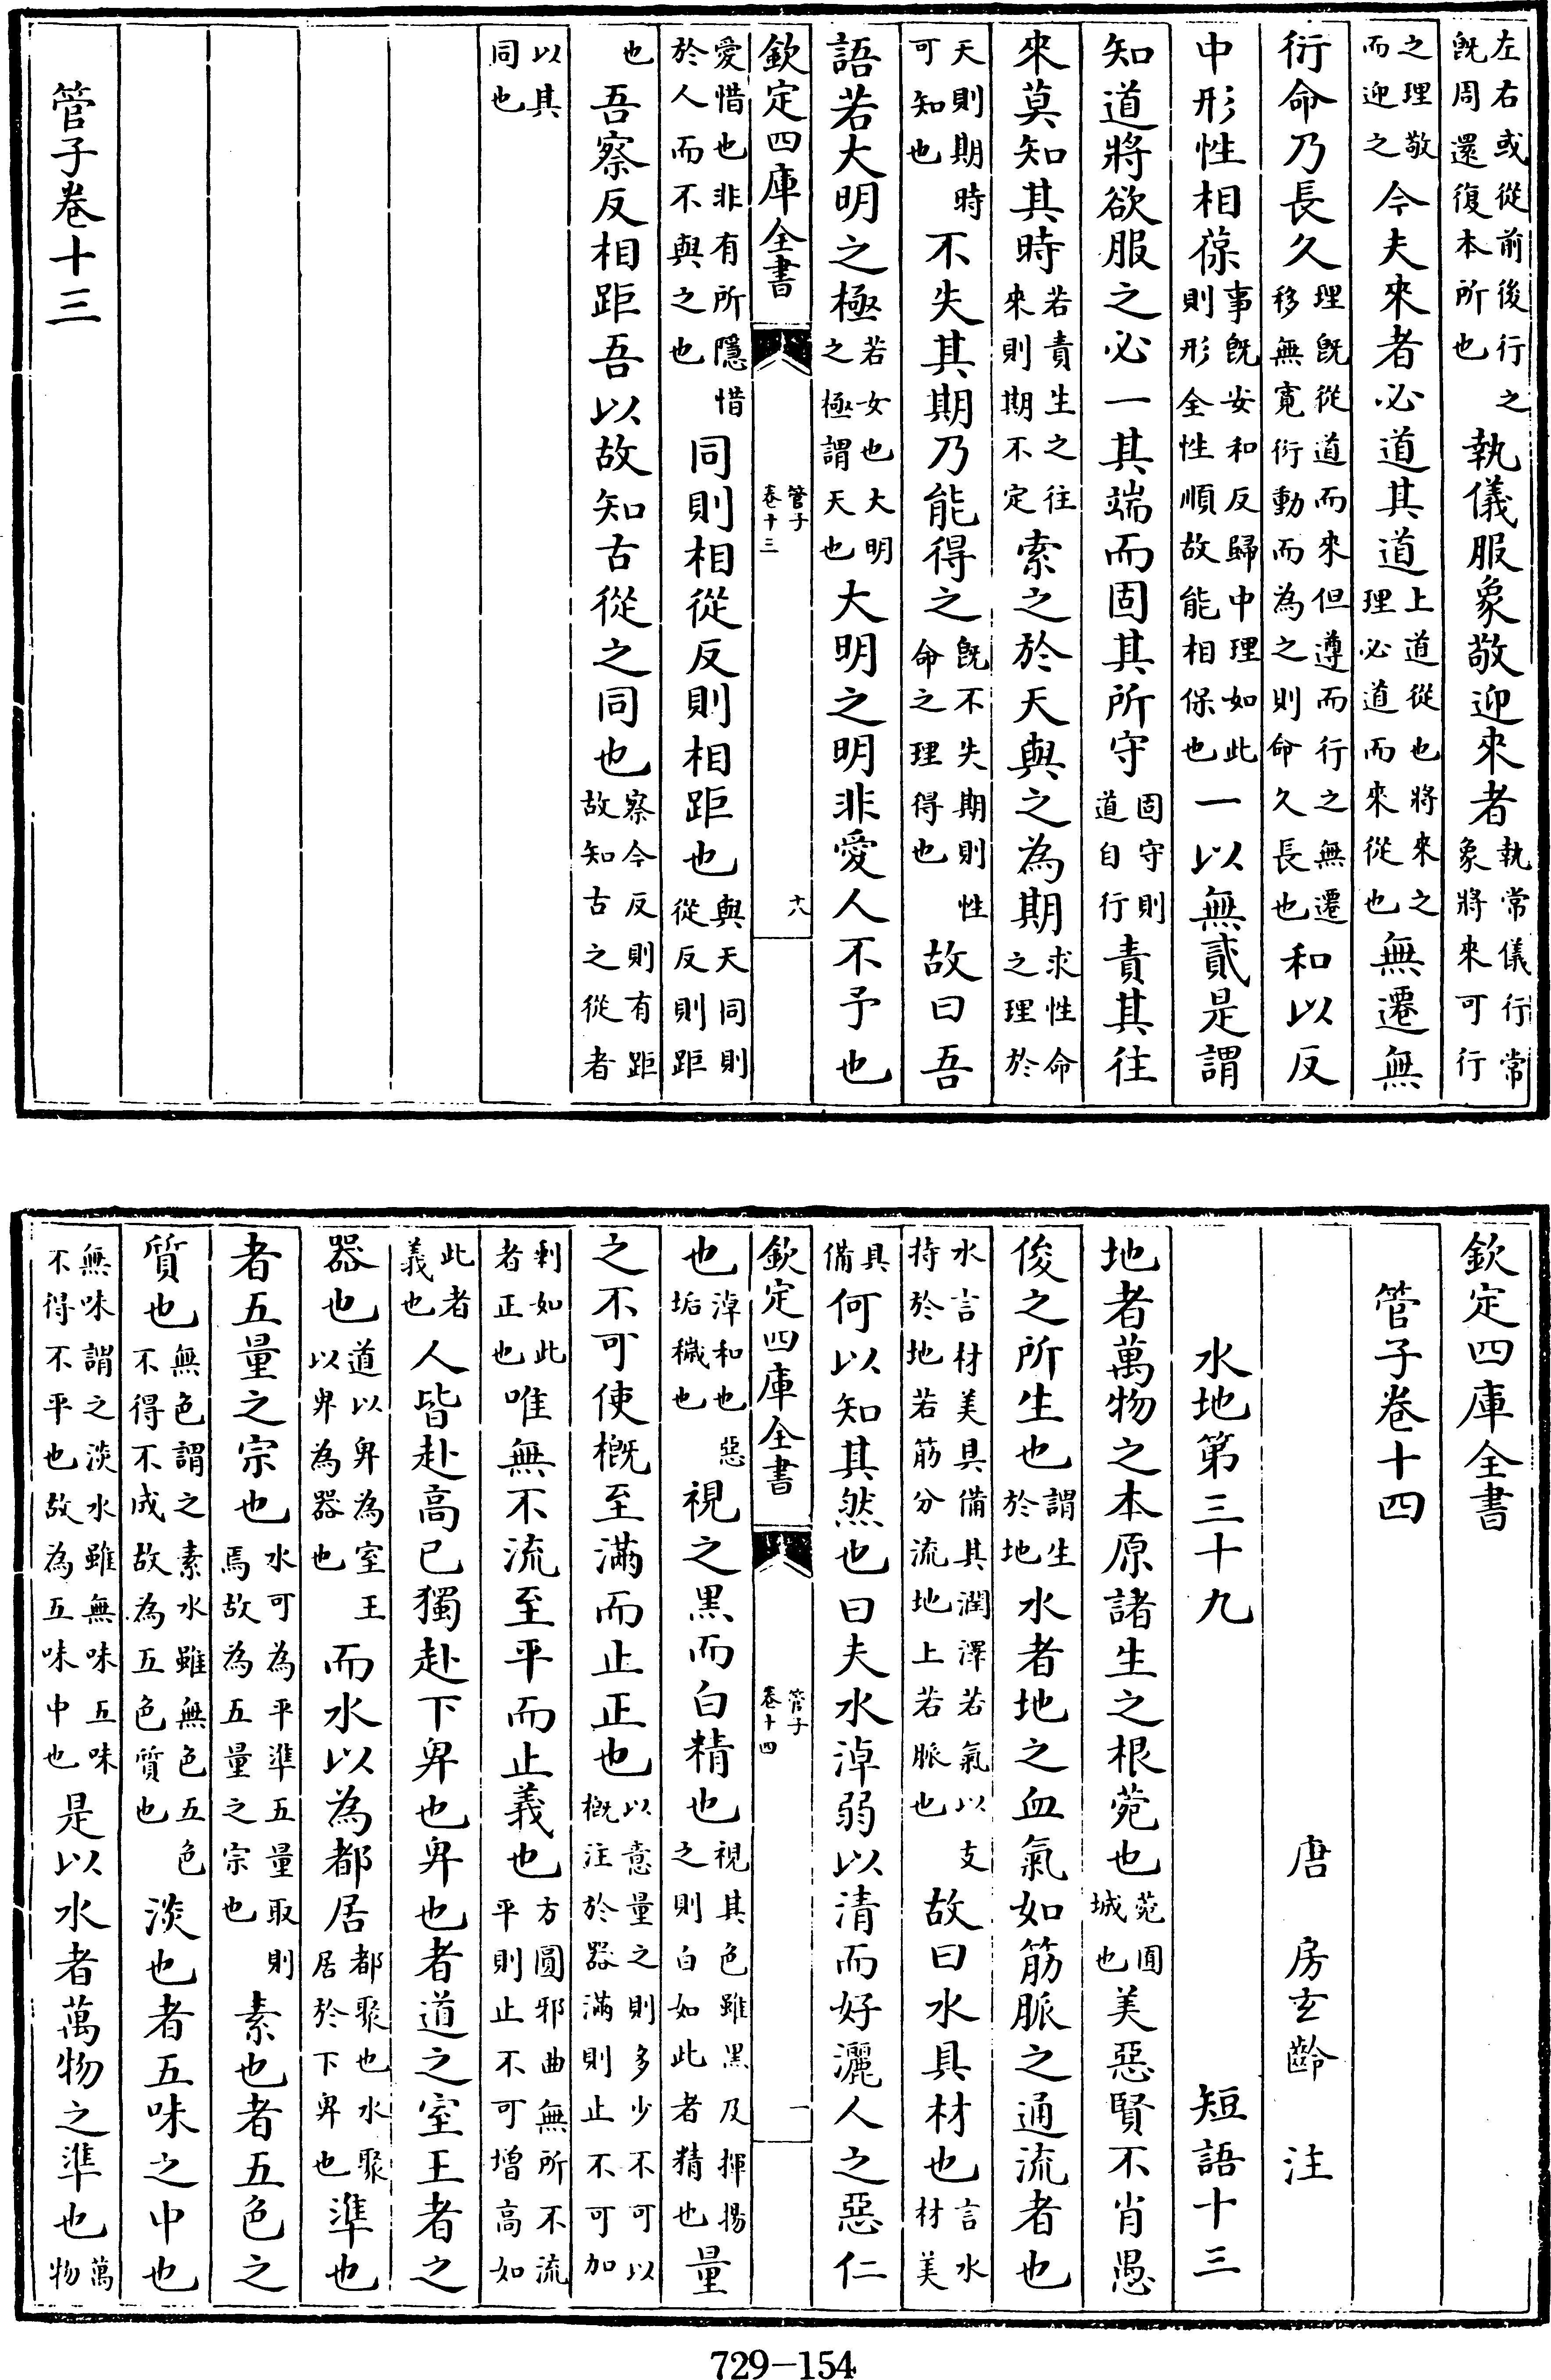 左右或從前後行之既周還復本所也執儀服象敬迎來者執常儀行常象將來可行
之理敬而迎之今夫來者必道其道上道從也將來之理必道而來從也無遷無
衍命乃長久理既從道而來但遵而行之無遷移無寛衍動而為之則命久長也和以反
中形性相葆事既安和反歸中理如此則形全性順故能相保也一以無貳是謂
知道將欲服之必一其端而固其所守固守則道自行責其往
來莫知其時若責生之往來則期不定索之於天與之為期求性命之理於
天則期時可知也不失其期乃能得之既不失期則性命之理得也故曰吾
語若大明之極若女也大明之極謂天也大明之明非愛人不予也
欽定四庫全書
管子
卷十三
十八
愛惜也非有所隱惜於人而不與之也同則相從反則相距也與天同則從反則距
也吾察反相距吾以故知古從之同也察今反則有距故知古之從者
以其同也
管子卷十三
欽定四庫全書
管子卷十四
唐 房玄齡 注
水地第三十九 短語十三
地者萬物之本原諸生之根菀也菀囿城也美惡賢不肖愚
俊之所生也謂生於地水者地之血氣如筋脈之通流者也
水言材美具備其潤澤若氣以支持於地若筋分流地上若脈也故曰水具材也言水材美
具備何以知其然也曰夫水淖弱以清而好灑人之惡仁
欽定四庫全書
管子
卷十四
一
也淖和也惡垢穢也視之黑而白精也視其色雖黑及揮揚之則白如此者精也量
之不可使概至滿而止正也以意量之則多少不可以概注於器滿則止不可加
剩如此者正也唯無不流至平而止義也方圓邪曲無所不流平則止不可增高如
此者義也人皆赴高已獨赴下卑也卑也者道之室王者之
器也道以卑為室王以卑為器也而水以為都居都聚也水聚居於下卑也準也
者五量之宗也水可為平準五量取則焉故為五量之宗也素也者五色之
質也無色謂之素水雖無色五色不得不成故為五色質也淡也者五味之中也
無味謂之淡水雖無味五味不得不平也故為五味中也是以水者萬物之準也萬物
729-154